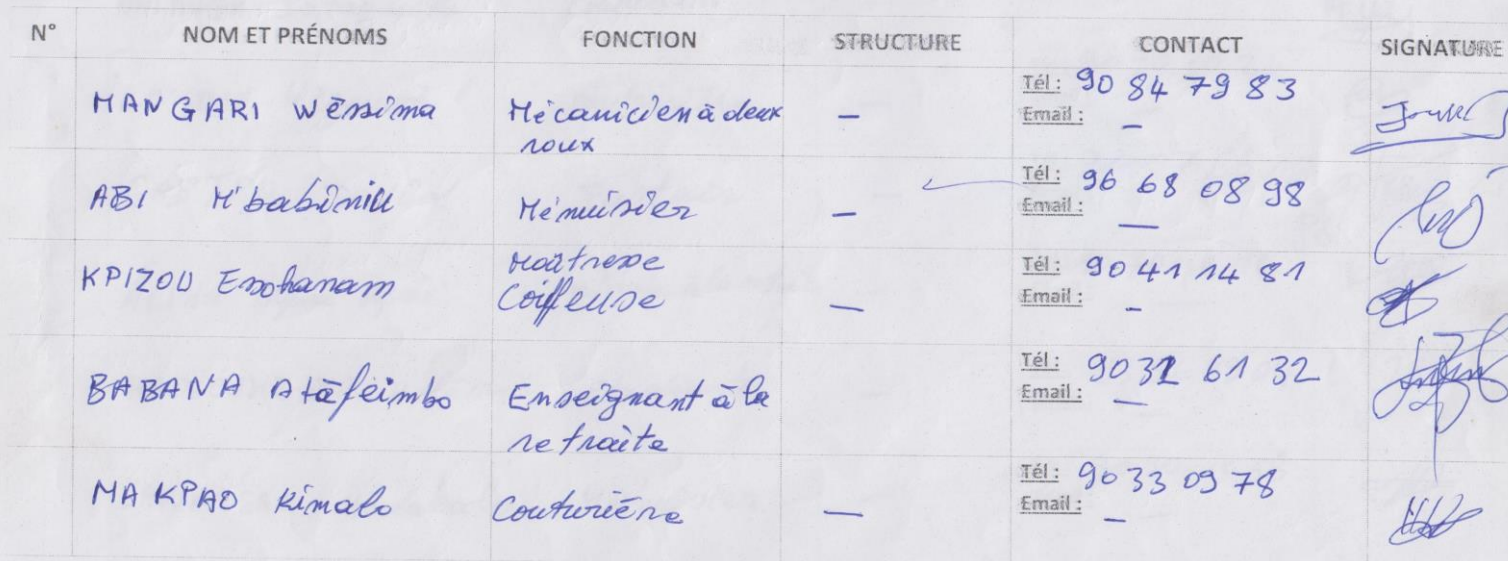 N° NOM ET PRÉNOMS FONCTION STRUCTURE CONTACT SIGNATURE
MANGARI Wēssima Mécanicien à deux Tél : 90 84 79 83
roux — Email : —
ABI M'babiniu Ménuisier — Tél : 96 68 08 98
Email : —
KPIZOU Essohanam Maîtresse Tél : 90 41 14 81
Coiffeuse — Email : —
BABANA Atāfeimbo Enseignant à la Tél : 90 32 61 32
retraite Email : —
MAKPAO Kimalo Couturière — Tél : 90 33 09 78
Email : —